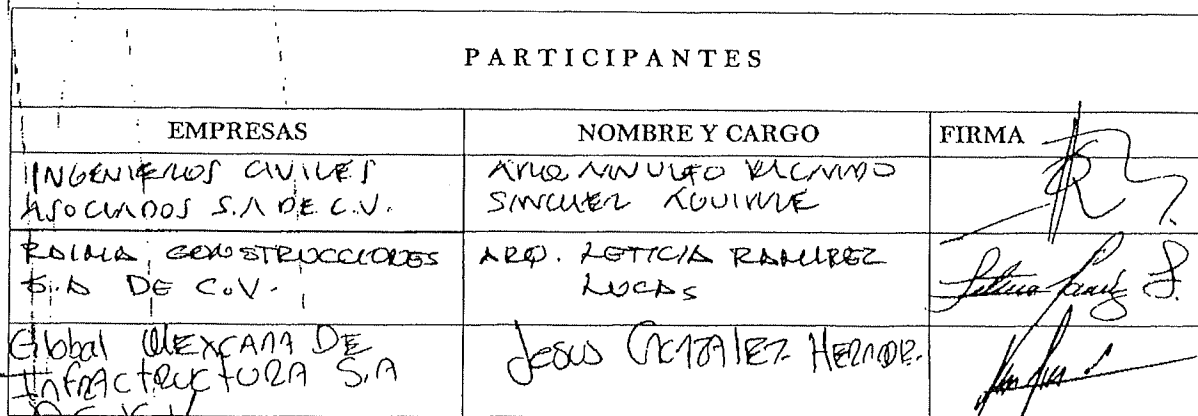 PARTICIPANTES
EMPRESAS NOMBRE Y CARGO FIRMA
INGENIEROS CIVILES
ASOCIADOS S.A DE C.V.
ARQ RICARDO
SANCHEZ AGUIRRE
RAIMA CONSTRUCCIONES
S.A DE C.V.
ARQ. LETICIA RAMIREZ
LUCAS
Global MEXICANA DE
INFRACTRUCTURA S.A
DE C.V
Jesus GONZALEZ HERNDE.